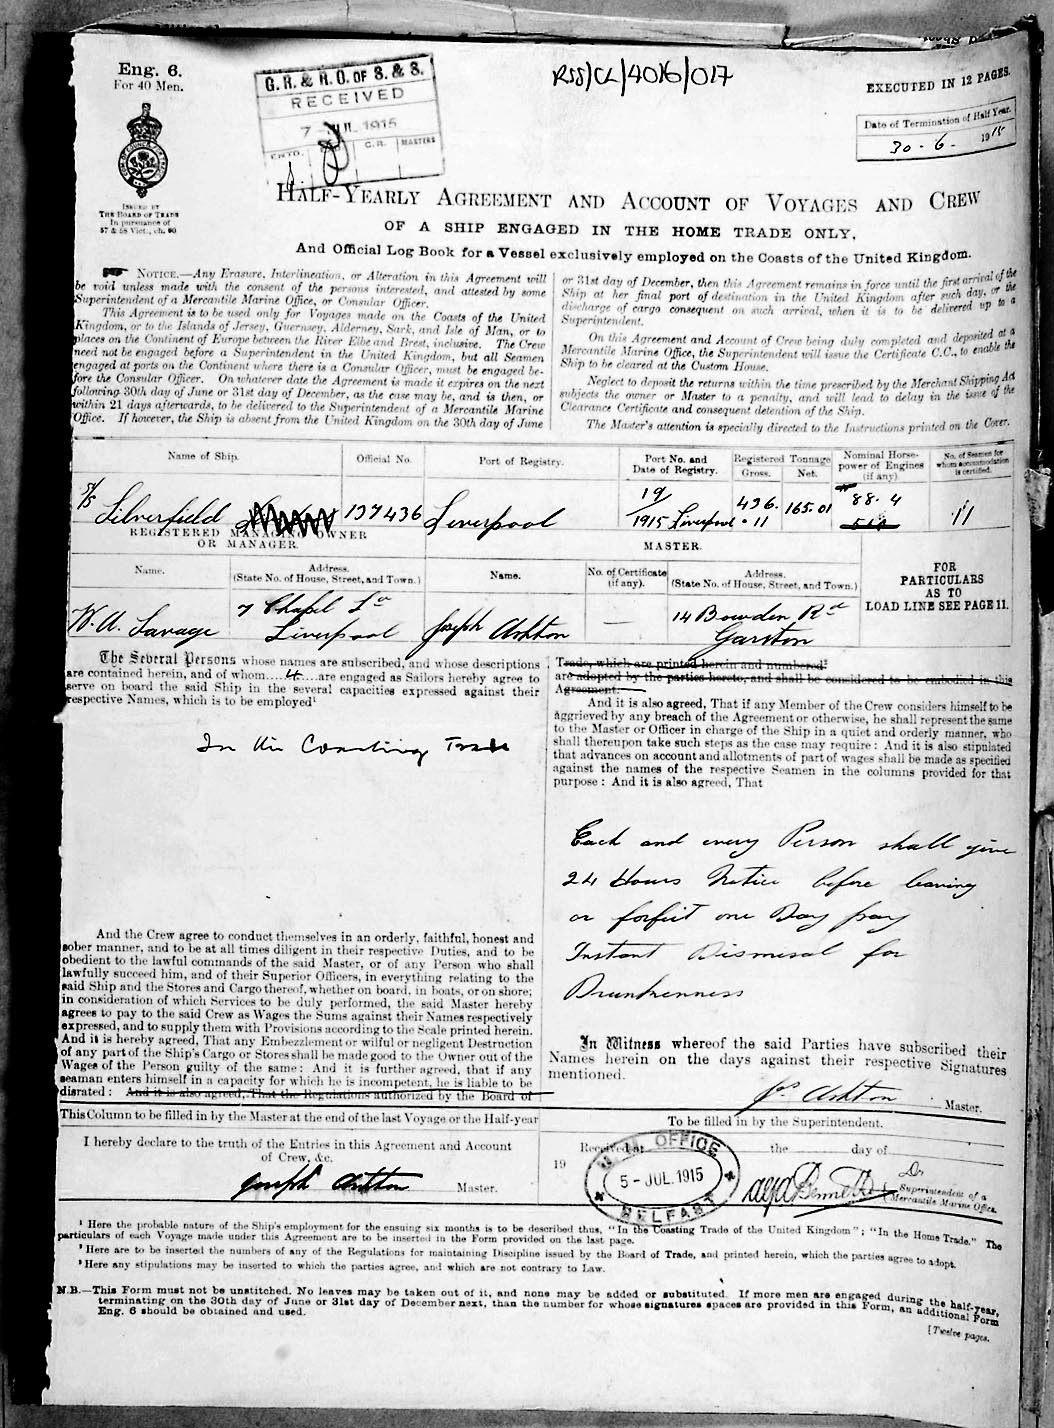 Eng. 6.
For 40 Men.
ISSUED BY
THE BOARD OF TRADE
In pursuance of
57 & 58 Vict., ch. 60
G.R. & R.O. OF S. & S.
RECEIVED
7 - JUL 1915
C.R. MASTERS
RSS/CL/4016/017
EXECUTED IN 12 PAGES.
Date of Termination of Half Year.
30 - 6 - 1915
HALF-YEARLY AGREEMENT AND ACCOUNT OF VOYAGES AND CREW
OF A SHIP ENGAGED IN THE HOME TRADE ONLY,
And Official Log Book for a Vessel exclusively employed on the Coasts of the United Kingdom.
NOTICE.—Any Erasure, Interlineation, or Alteration in this Agreement will
be void unless made with the consent of the persons interested, and attested by some
Superintendent of a Mercantile Marine Office, or Consular Officer.
This Agreement is to be used only for Voyages made on the Coasts of the United
Kingdom, or to the Islands of Jersey, Guernsey, Alderney, Sark, and Isle of Man, or to
places on the Continent of Europe between the River Elbe and Brest, inclusive. The Crew
need not be engaged before a Superintendent in the United Kingdom, but all Seamen
engaged at ports on the Continent where there is a Consular Officer, must be engaged be-
fore the Consular Officer. On whatever date the Agreement is made it expires on the next
following 30th day of June or 31st day of December, as the case may be, and is then, or
within 21 days afterwards, to be delivered to the Superintendent of a Mercantile Marine
Office. If however, the Ship is absent from the United Kingdom on the 30th day of June
or 31st day of December, then this Agreement remains in force until the first arrival of the
Ship at her final port of destination in the United Kingdom after such day, or the
discharge of cargo consequent on such arrival, when it is to be delivered up to a
Superintendent.
On this Agreement and Account of Crew being duly completed and deposited at a
Mercantile Marine Office, the Superintendent will issue the Certificate C.C., to enable the
Ship to be cleared at the Custom House.
Neglect to deposit the returns within the time prescribed by the Merchant Shipping Act
subjects the owner or Master to a penalty, and will lead to delay in the issue of the
Clearance Certificate and consequent detention of the Ship.
The Master's attention is specially directed to the Instructions printed on the Cover.
Name of Ship.
Official No.
Port of Registry.
Port No. and
Date of Registry.
Registered Tonnage
Gross. Net.
Nominal Horse-
power of Engines
(if any).
No. of Seamen for
whom accommodation
is certified.
S/S Silverfield
137436
Liverpool
19/1915 Liverpool
436.11
165.01
88.4
11
REGISTERED MANAGING OWNER
OR MANAGER.
MASTER.
FOR
PARTICULARS
AS TO
LOAD LINE SEE PAGE 11.
Name.
Address.
(State No. of House, Street, and Town.)
Name.
No. of Certificate
(if any).
Address.
(State No. of House, Street, and Town.)
W. A. Savage
7 Chapel St
Liverpool
Joseph Ashton
—
14 Bowden Rd
Garston
The Several Persons whose names are subscribed, and whose descriptions
are contained herein, and of whom....4....are engaged as Sailors hereby agree to
serve on board the said Ship in the several capacities expressed against their
respective Names, which is to be employed¹
In the Coasting Trade
And the Crew agree to conduct themselves in an orderly, faithful, honest and
sober manner, and to be at all times diligent in their respective Duties, and to be
obedient to the lawful commands of the said Master, or of any Person who shall
lawfully succeed him, and of their Superior Officers, in everything relating to the
said Ship and the Stores and Cargo thereof, whether on board, in boats, or on shore;
in consideration of which Services to be duly performed, the said Master hereby
agrees to pay to the said Crew as Wages the Sums against their Names respectively
expressed, and to supply them with Provisions according to the Scale printed herein.
And it is hereby agreed, That any Embezzlement or wilful or negligent Destruction
of any part of the Ship's Cargo or Stores shall be made good to the Owner out of the
Wages of the Person guilty of the same: And it is further agreed, that if any
seaman enters himself in a capacity for which he is incompetent, he is liable to be
disrated: And it is also agreed, That the Regulations authorized by the Board of
Trade, which are printed herein and numbered²
are adopted by the parties hereto, and shall be considered to be embodied in this
Agreement.
And it is also agreed, That if any Member of the Crew considers himself to be
aggrieved by any breach of the Agreement or otherwise, he shall represent the same
to the Master or Officer in charge of the Ship in a quiet and orderly manner, who
shall thereupon take such steps as the case may require: And it is also stipulated
that advances on account and allotments of part of wages shall be made as specified
against the names of the respective Seamen in the columns provided for that
purpose: And it is also agreed, That
Each and every Person shall give
24 Hours Notice before leaving
or forfeit one Day pay
Instant Dismisal for
Drunkenness
In Witness whereof the said Parties have subscribed their
Names herein on the days against their respective Signatures
mentioned.
Js Ashton Master.
This Column to be filled in by the Master at the end of the last Voyage or the Half-year
I hereby declare to the truth of the Entries in this Agreement and Account
of Crew, &c.
Joseph Ashton Master.
To be filled in by the Superintendent.
Received at the day of
19
M.M. OFFICE
5 - JUL. 1915
BELFAST
Bennett
Superintendent of a
Mercantile Marine Office.
¹ Here the probable nature of the Ship's employment for the ensuing six months is to be described thus, "In the Coasting Trade of the United Kingdom"; "In the Home Trade." The
particulars of each Voyage made under this Agreement are to be inserted in the Form provided on the last page.
² Here are to be inserted the numbers of any of the Regulations for maintaining Discipline issued by the Board of Trade, and printed herein, which the parties agree to adopt.
³ Here any stipulations may be inserted to which the parties agree, and which are not contrary to Law.
N.B.—This Form must not be unstitched. No leaves may be taken out of it, and none may be added or substituted. If more men are engaged during the half-year,
terminating on the 30th day of June or 31st day of December next, than the number for whose signatures spaces are provided in this Form, an additional Form
Eng. 6 should be obtained and used.
[Twelve pages.